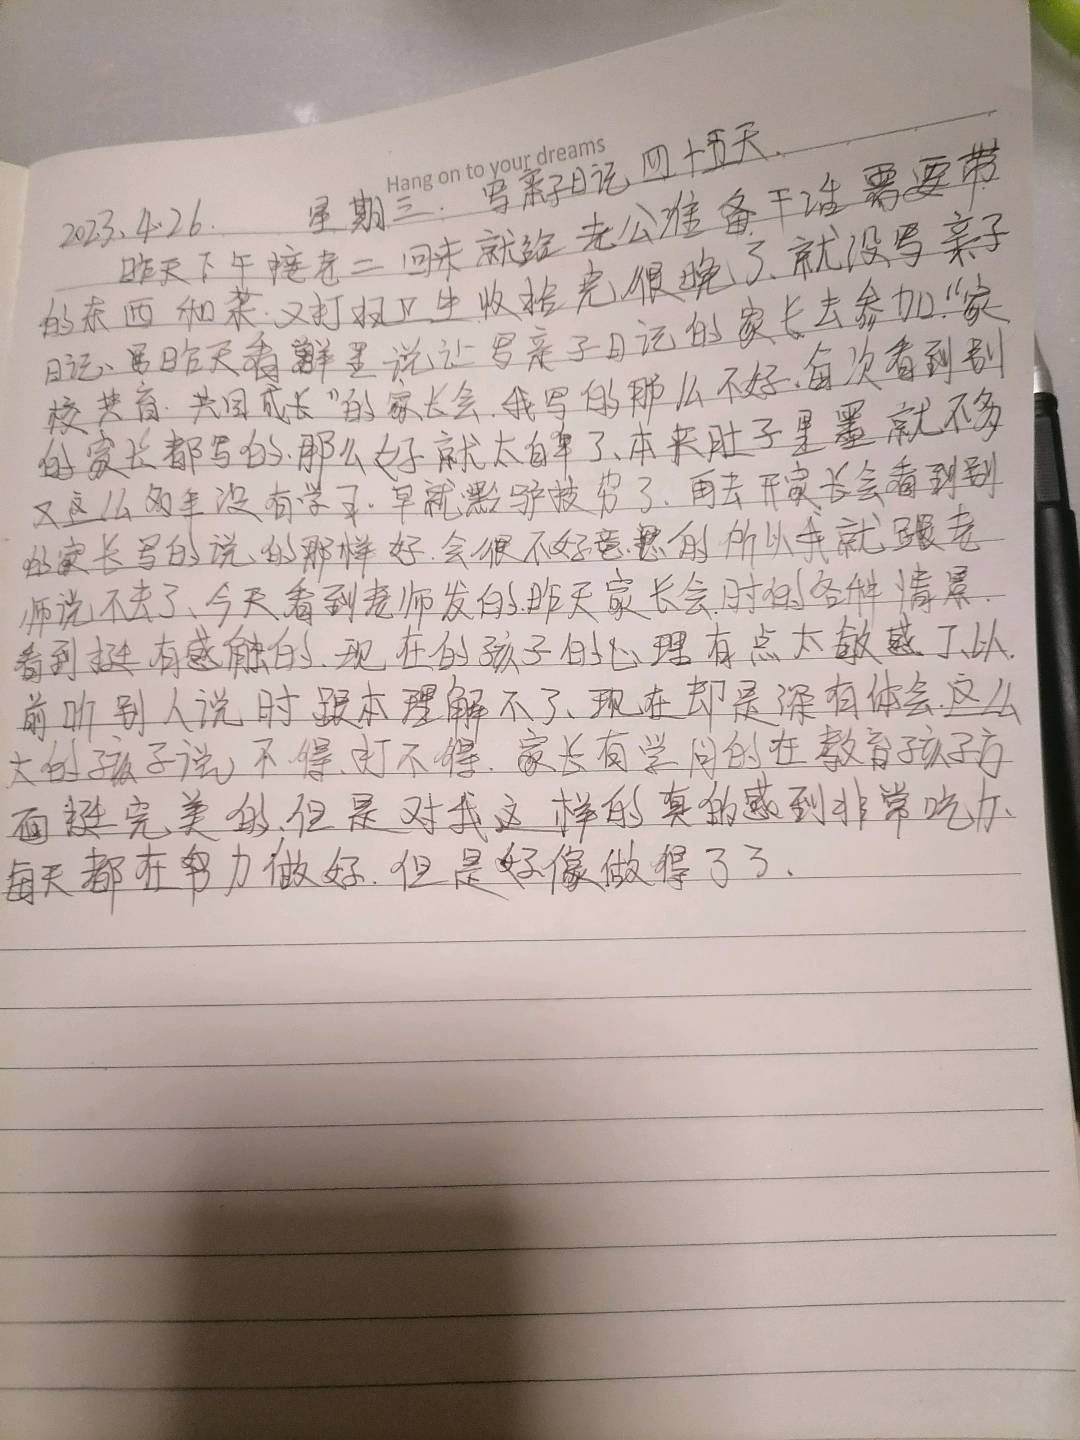 Hang on to your dreams
2023、4.26. 星期三. 写亲子日记 四十五天.
昨天下午接老二回来就给老公准备干活需要带
的东西和菜.又打扫卫生收拾完很晚了、就没写亲子
日记、昨天看群里说让写亲子日记的家长去参加“家
校共育.共同成长”的家长会.我写的那么不好.每次看到别
的家长都写的.那么好就太自卑了、本来肚子里墨就不多
又这么多年没有学习.早就黔驴技穷了.再去开家长会看到别
的家长写的说的那样好.会很不好意思的所以我就跟老
师说不去了、今天看到老师发的.昨天家长会.时的各种情景.
看到挺有感触的.现在的孩子的心理有点太敏感了.以
前听别人说时跟本理解不了、现在却是深有体会.这么
大的孩子说不得.打不得.家长有学问的在教育孩子方
面挺完美的.但是对我这样的真的感到非常吃力、
每天都在努力做好.但是好像做得了了、